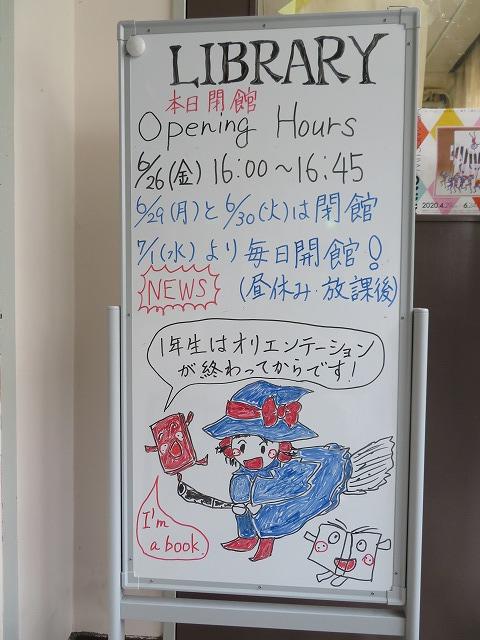 LIBRARY
本日閉館
Opening Hours
6/26(金) 16:00～16:45
6/29(月)と6/30(火)は閉館
7/1(水)より毎日開館!
NEWS (昼休み・放課後)
1年生はオリエンテーション
が終わってからです!
I'm
a book.
2020.4.